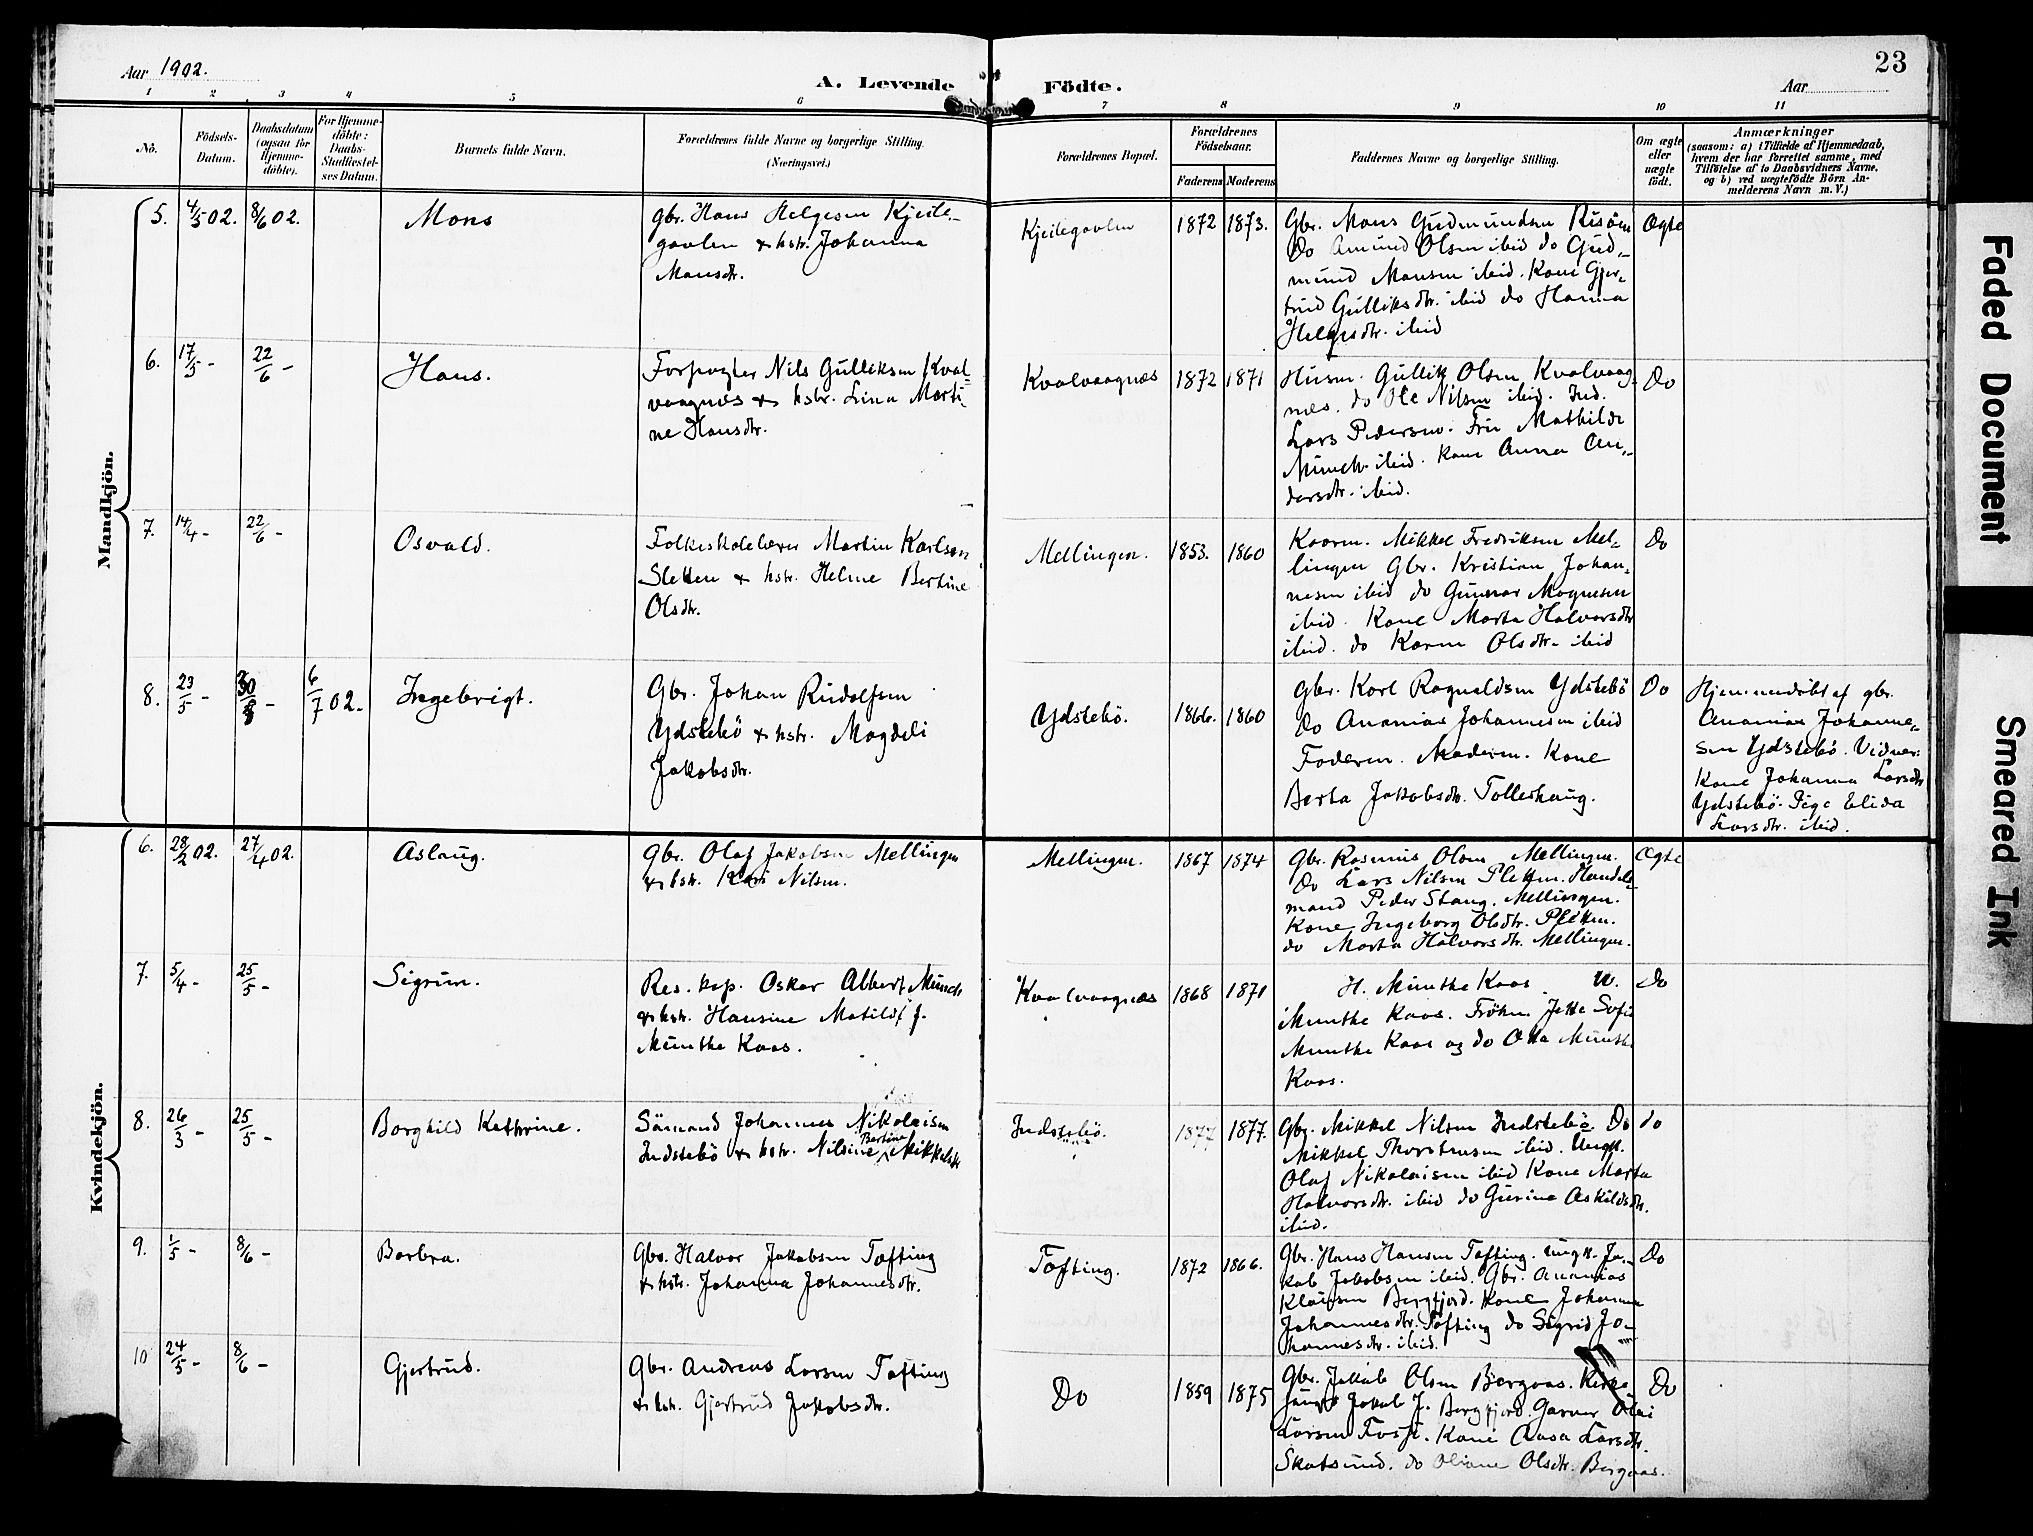 Aar 1902.
A. Levende Födte.
Aar
23
1 2 3 4 5 6 7 8 9 10 11
No.
Födsels-
Datum.
Daabsdatum
(ogsaa for
Hjemme-
döbte).
For Hjemme-
döbte:
Daabs-
Stadfæstel-
ses Datum.
Barnets fulde Navn.
Forældrenes fulde Navne og borgerlige Stilling.
(Næringsvei.)
Forældrenes Bopæl.
Forældrenes
Födselsaar.
Faderens Moderens
Faddernes Navne og borgerlige Stilling.
Om ægte
eller
uægte
födt.
Anmærkninger
(saasom: a) i Tilfælde af Hjemmedaab,
hvem der har forrettet samme, med
Tilföielse af to Daabsvidners Navne,
og b) ved uægtefödte Börn An-
melderens Navn m. V.)
Mandkjön.
5. 4/5 02. 8/6 02.
Mons
Gbr. Hans Helgesen Kjeile-
gavlen & hstr. Johanna
Monsdtr.
Kjeilegavlen
1872 1873.
Gbr. Mons Gudmundsen Risöen
Do Amund Olsen ibid do Gud-
mund Monsen ibid. Kone Gjer-
trud Gulliksdtr. ibid do Hanna
Helgesdtr. ibid
Ægte
6. 17/5 - 22/6 -
Hans.
Forpagter Nils Gulliksen Kval-
vaagnes & hstr. Lina Marti-
ne Hansdtr.
Kvalvaagnæs
1872 1871
Husm. Gullik Olsen Kvalvaag-
nes. do Ole Nilsen ibid. Ind.
Lars Pedersen. Fru Mathilde
Münch ibid. Kone Anna An-
dersdtr. ibid.
Do
7. 14/4 - 22/6 -
Osvald.
Folkeskolelærer Martin Karlsen
Sletten & hstr. Helene Bertine
Olsdtr.
Mellingen.
1853. 1860
Kaarm. Mikkel Fredriksen Mel-
lingen Gbr. Kristian Johan-
nesen ibid do Gunnar Mognesen
ibid. Kone Marta Halvorsdtr
ibid. do Karen Olsdtr. ibid
Do
8. 23/5 - 30/ - 6/7 02.
Ingebrigt.
Gbr. Johan Rudolfsen
Ydstebö & hstr. Magdeli
Jakobsdtr.
Ydstebö.
1866. 1860
Gbr. Karl Ragnvaldsen Ydstebö
Do Ananias Johannesen ibid
Faderen. Moderen. Kone
Berta Jakobsdtr. Tolleshaug.
Do
Hjemmedöbt af gbr.
Ananias Johanne-
sen Ydstebö. Vidner:
Kone Johanna Larsdtr
Ydstebö. Pige Elida
Larsdtr. ibid.
Kvindekjön.
6. 28/2 02. 27/4 02.
Aslaug.
Gbr. Olaf Jakobsen Mellingen
& hstr. Kari Nilsen.
Mellingen.
1867 1874
Gbr. Rasmus Olsen Mellingen.
Do Lars Nilsen Sletten. Handels-
mand Peder Stang. Mellingen.
Kone Ingeborg Olsdtr. Sletten.
do Marta Halvorsdtr. Mellingen.
Ægte
7. 5/4 - 25/5 -
Sigrun.
Res. kap. Oskar Albert Münch
& hstr. Hansine Matilde f.
Münthe Kaas.
Kvalvaagnæs
1868 1871
H. Münthe Kaas. W.
Münthe Kaas. Frökn. Jette Sofie
Munthe Kaas og do Otta Münthe
Kaas.
Do
8. 26/3 - 25/5 -
Borghild Kathrine.
Sömand Johannes Nikolaisen
Indstebö & hstr. Nilsine Bertine Mikkelsdtr
Indstebö.
1877 1877.
Gbr. Mikkel Nilsen Indstebö. Do
Mikkel Thorstensen ibid. Ungk.
Olaf Nikolaisen ibid Kone Marta
Halvorsdtr. ibid do Gurine Askildsdtr.
ibid.
do
9. 1/5 - 8/6 -
Barbra.
Gbr. Halvor Jakobsen Tofting
& hstr. Johanna Johannesdtr.
Tofting.
1872 1866.
Gbr. Hans Hansen Tofting. ungk. Ja-
kob Jakobsen ibid. Gbr. Ananias
Klausen Bergfjord. Kone Johanna
Johannesdtr. Tofting do Sigrid Jo-
hannesdtr. ibid.
Do
10 24/5 - 8/6 -
Gjertrud.
Gbr. Andreas Larsen Tofting
& hstr. Gjertrud Jakobsdtr.
Do
1859 1875
Gbr. Jakob Olsen Bergaas. Kirke-
sang. Jakob J. Bergfjord. Garver Olai
Larsen Fosse. Kone Aasa Larsdtr.
Skatsund. do Oliane Olsdtr. Bergaas.
Do
Faded Document
Smeared Ink